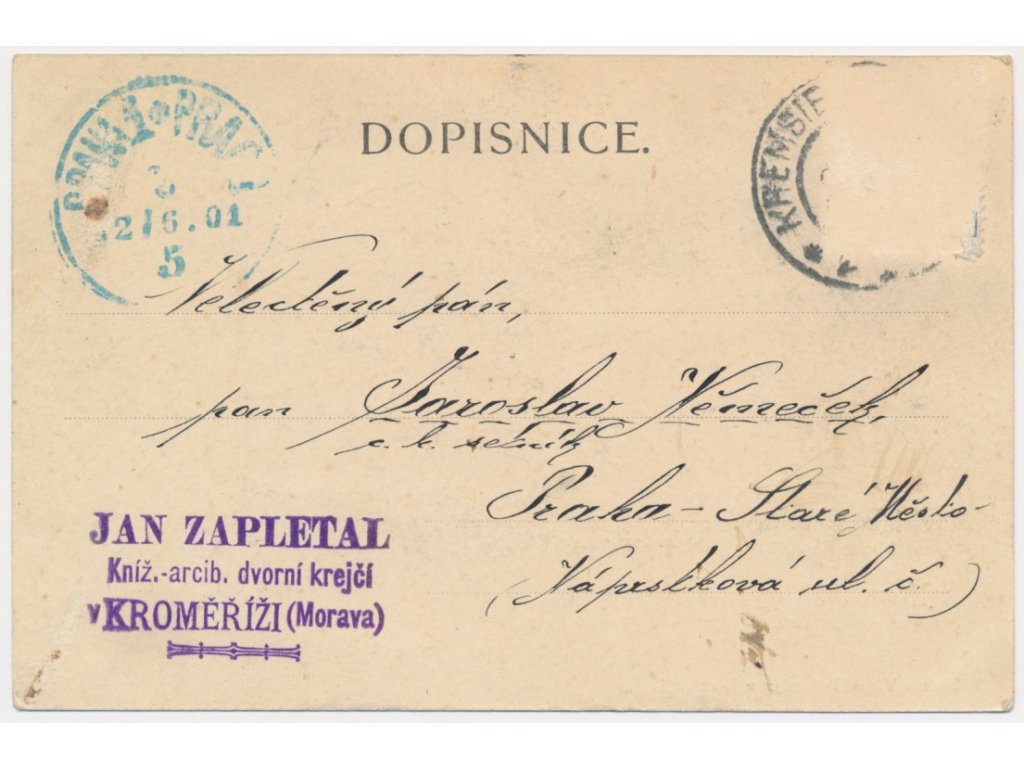 PRAHA 1 PRAG
2/6.01
5
DOPISNICE.
KREMSIE
Velectěný pán,
pan Jaroslav Němeček,
c. k.
Praha - Staré Město -
( Náprstková ul. č. )
JAN ZAPLETAL
Kníž.-arcib. dvorní krejčí
v KROMĚŘÍŽI (Morava)